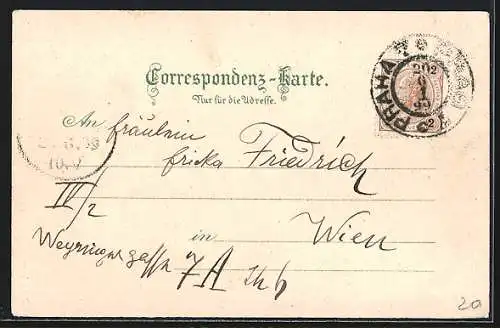 Correspondenz-Karte.
Nur für die Adresse.
PRAHA
An fräulein
fricka Friedrich
IV/2
in Wien
Weyringergasse 7A
20